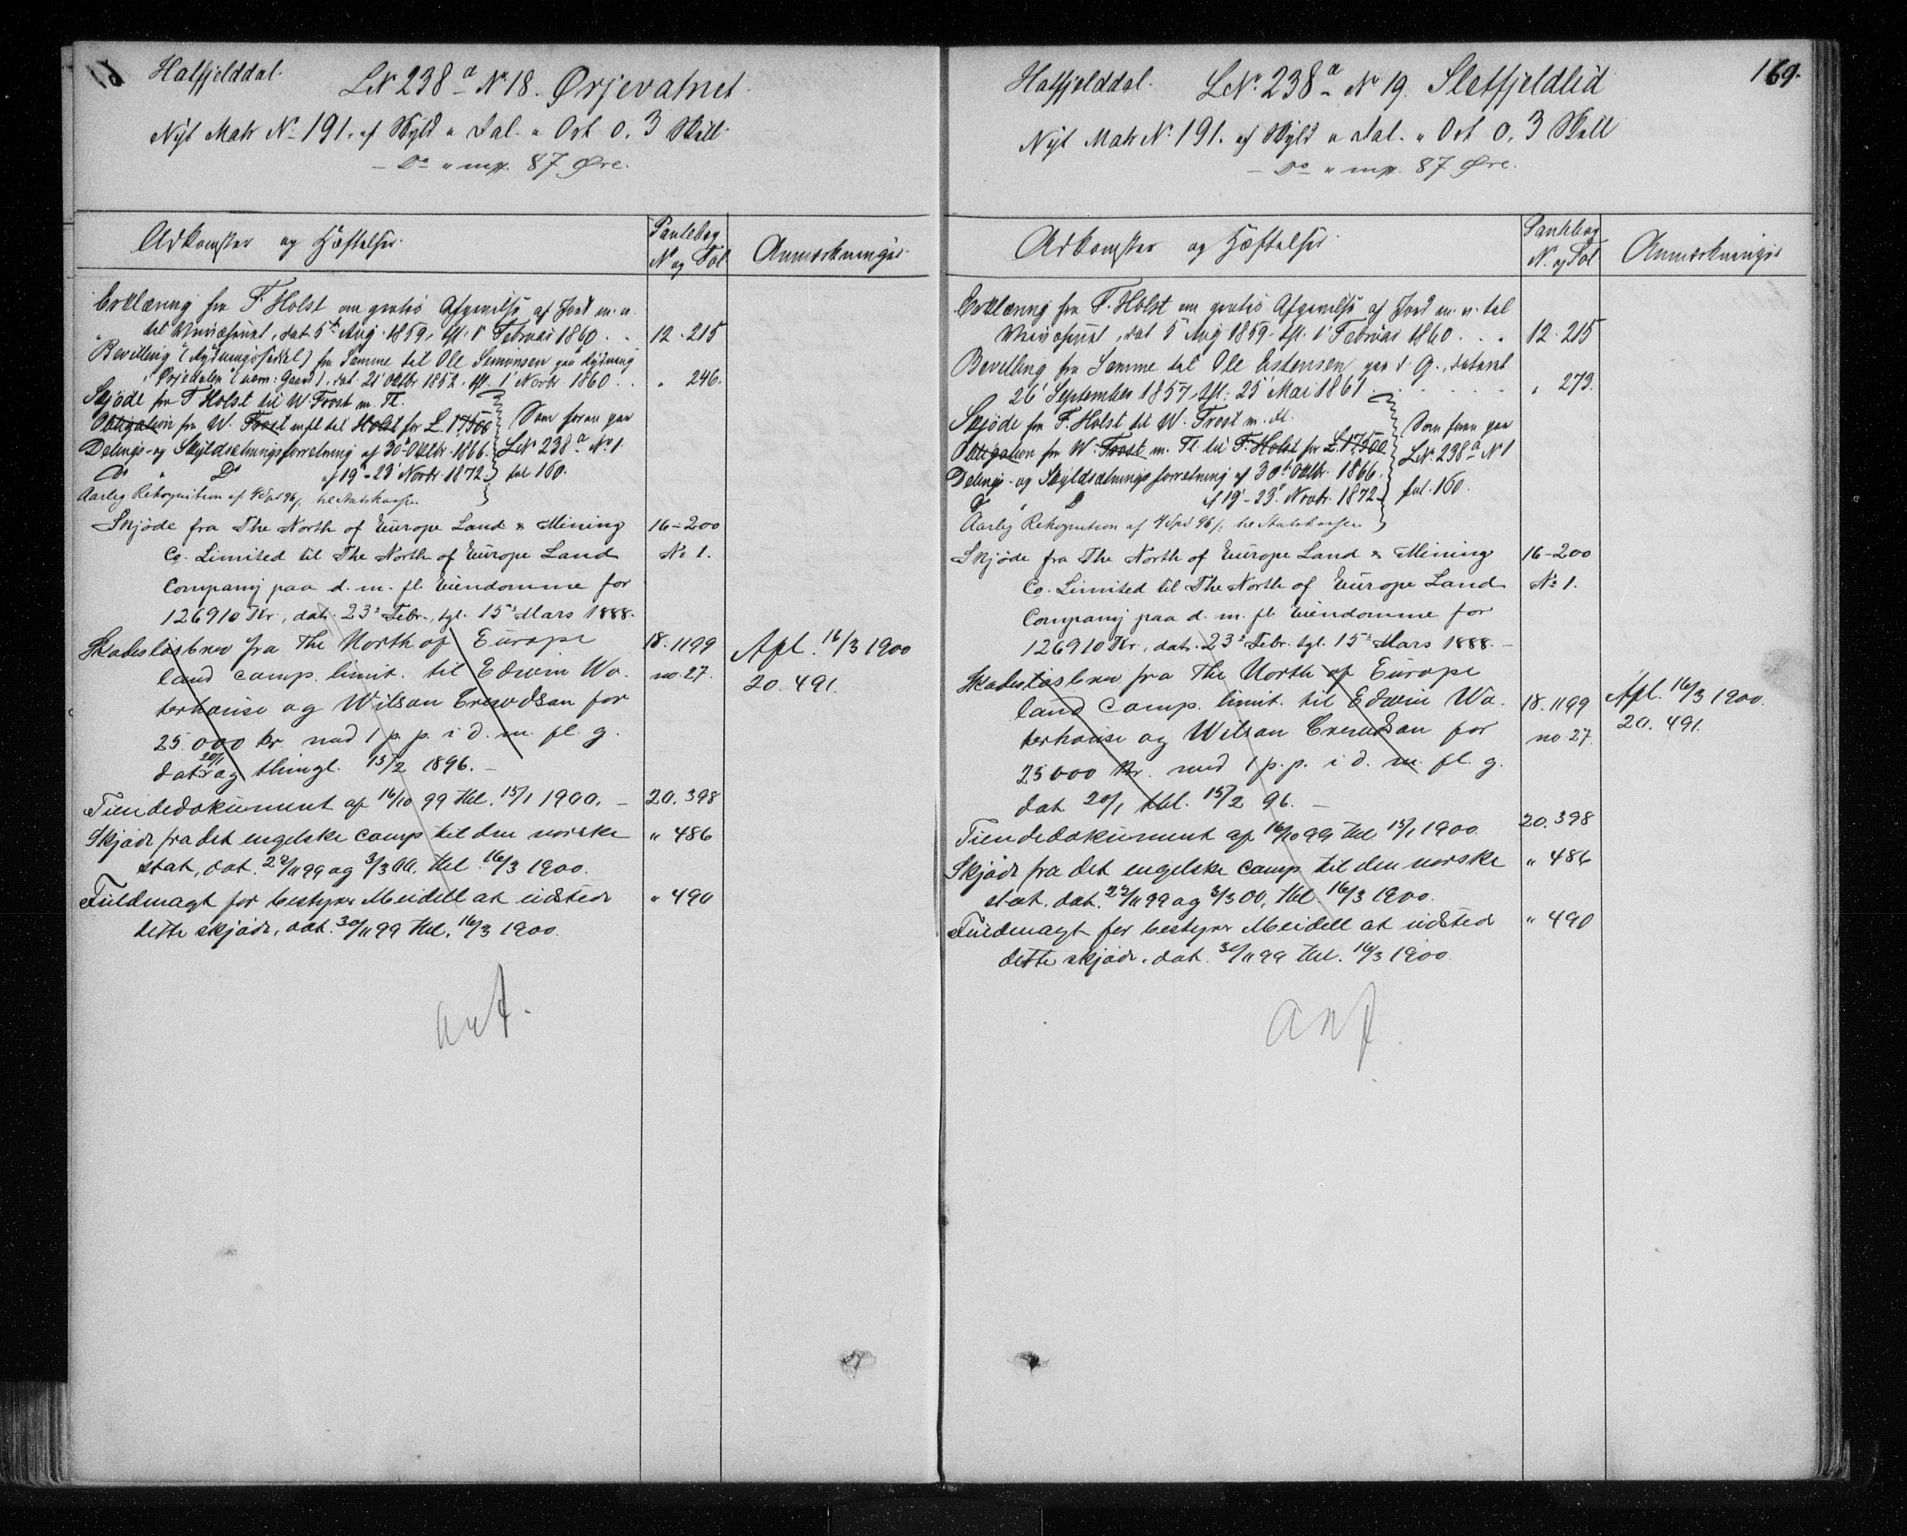 Hatfjelddal.
LNr 238a No 18. Ørjevatnet.
Nyt Matr No 191. af Skyld " Dal. " Ort 0. 3 Skill.
- Do " mp. 87 Øre.
Adkomster og Hæftelser.
Pantebog
N og Fol
Anmærkninger.
Erklæring fra F. Holst om gratis Afgivelse af Jord m. v.
til Præstebruket, dat. 5te Aug. 1859, tgl. 1 Februar 1860 . . 12. 215
Bevilling (Rydningsseddel) fra Samme til Ole Simonsen paa Rydning
i Ørjedalen (nem: Gaard), dat. 21 Oktbr 1852, tgl. 1 Novbr. 1860 . . " 246.
Skjøde fra F. Holst til W. Frost m. fl.
Obligation fra W. Frost m fl til Holst for £. 17,500
Som foran paa
Delings- og Skyldsætningsforretning af 30 Oktbr. 1866.
LNr 238a No 1
Do " Do af 19 - 23 Novbr. 1872.
fol 160.
Aarleg Rekognition af 4 Spd 96 s. til Statskassen
Skjøde fra The North of Europe Land & Mining 16 - 200
Co. Limited til The North of Europe Land No 1.
Company paa d. m. fl. Eiendomme for
126910 Kr., dat. 23 Febr., tgl. 15 Mars 1888.
Skadesløsbrev fra The North of Europe 18. 1199 Afl. 16/3 1900
land comp. limit. til Edwin Wa- no 27. 20. 491.
terhouse og Wilson Crewdson for
25000 kr. med 1 p. p. i d. m. fl. g.
dat. 20/1 og thingl. 15/2 1896. -
Tiendedokument af 16/10 99 thl. 15/1 1900. - 20. 398
Skjøde fra det engelske comp. til den norske " 486
stat, dat. 29/11 99 og 3/3 00, thl. 16/3 1900.
Fuldmagt for bestyrer Meidell at udstede " 490
dette skjøde, dat. 30/11 99 thl. 16/3 1900.
anf.
169.
Hatfjelddal.
LNr. 238a No 19. Sletfjeldlid
Nyt Matr No. 191. af Skyld " Dal. " Ort 0. 3 Skill
- Do " mp. 87 Øre.
Adkomster og Hæftelser.
Pantebog
N. og Fol
Anmærkninger
Erklæring fra F. Holst om gratis Afgivelse af Jord m. v. til
Præstebruket, dat 5 Aug 1859. tgl. 1 Februar 1860 . . . 12. 215
Bevilling fra Samme til Ole Estensen paa d. G., dateret
26 September 1857, tgl. 25 Mai 1861 . . . . " 273.
Skjøde fra F. Holst til W. Frost m. fl.
Som foran paa
Obligation fra W. Frost m. Fl. til F. Holst for £. 17,500
LNr. 238a No 1
Delings- og Skyldsætningsforretning af 30 Oktbr. 1866.
Do " Do af 19 - 23 Novbr. 1872.
fol. 160.
Aarlig Rekognition af 4 Spd 96 s. til Statskassen
Skjøde fra The North of Europe Land & Mining 16 - 200
Co. Limited til The North of Europe Land No 1.
Company paa d. m. fl. Eiendomme for
126910 Kr., dat. 23 Febr. tgl. 15 Mars 1888. -
Skadesløsbrev fra The North of Europe
land comp. limit. til Edwin Wa- 18. 1199 Afl. 16/3 1900.
terhouse og Wilson Crewdson for no 27. 20. 491.
25000 kr. med 1 p. p. i d. m. fl. g.
dat 20/1 thl. 15/2 96. -
Tiendedokument af 16/10 99 thl 15/1 1900. 20. 398
Skjøde fra det engelske comp. til den norske " 486
stat, dat. 29/11 99 og 3/3 00, thl. 16/3 1900.
Fuldmagt for bestyrer Meidell at udstede " 490
dette skjøde, dat. 30/11 99 thl. 16/3 1900.
anf.